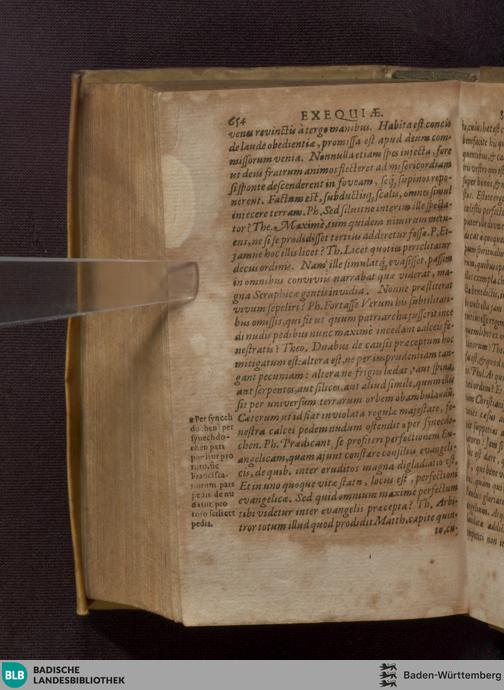 654 EXEQUIÆ.
venes revinctis à tergo manibus. Habita est concio
de laude obedientiæ, promissa est apud deum com-
missorum venia. Nonnulla etiam spes injecta, fore
ut deus fratrum animos flecteret ad misericordiam
si sponte descenderent in foveam, seq; supinos repo-
nerent. Factum est, subductisq; scalis, omnes simul
injecere terram. Ph. Sed siluitne interim ille specta-
tor? The. Maxime, tum quidem nimirum metu-
ens, ne si se prodidisset tertius adderetur fossæ. P. Et-
jamne hoc illis licet? Th. Licet quoties periclitatur
decus ordinis. Nam ille simulatq; evasisset, passim
in omnibus conviviis narrabat quæ viderat, ma-
gna Seraphicæ gentis invidia. Nonne præstiterat
vivum sepeliri? Ph. Fortasse. Verum his subtilitati-
bus omissis, qui fit ut quum patriarcha jusserit ince
di nudis pedibus nunc maxime incedant calceis fe-
nestratis? Theo. Duabus de causis præceptum hoc
mitigatum est: altera est, ne per imprudentiam tan-
gant pecuniam: altera ne frigus lædat, aut spina,
aut serpentes, aut silices, aut aliud simile, quum illis
fit per universum terrarum orbem obambulandum.
Cæterum ut id fiat inviolata regulæ majestate, fe-
nestra calcei pedem nudum ostendit, per synecdo-
chen. Ph. Prædicant, se profiteri perfectionem Eu-
angelicam, quam ajunt constare consiliis evangeli-
cis, de quib. inter eruditos magna digladiatio est.
Et in uno quoque vitæ statu, locus est, perfectioni
evangelicæ. Sed quid omnium maxime perfectum
tibi videtur inter evangelii præcepta? Th. Arbi-
tror totum illud quod prodidit Matth. capite quin-
to, cu-
* Per synecdo
dochen) per
synecdo-
chen pars
ponitur pro
toto, sic
Francisca-
norum pars
pedis denu
datur, pro
toto scilicet
pedis.
BLB
BADISCHE
LANDESBIBLIOTHEK
Baden-Württemberg